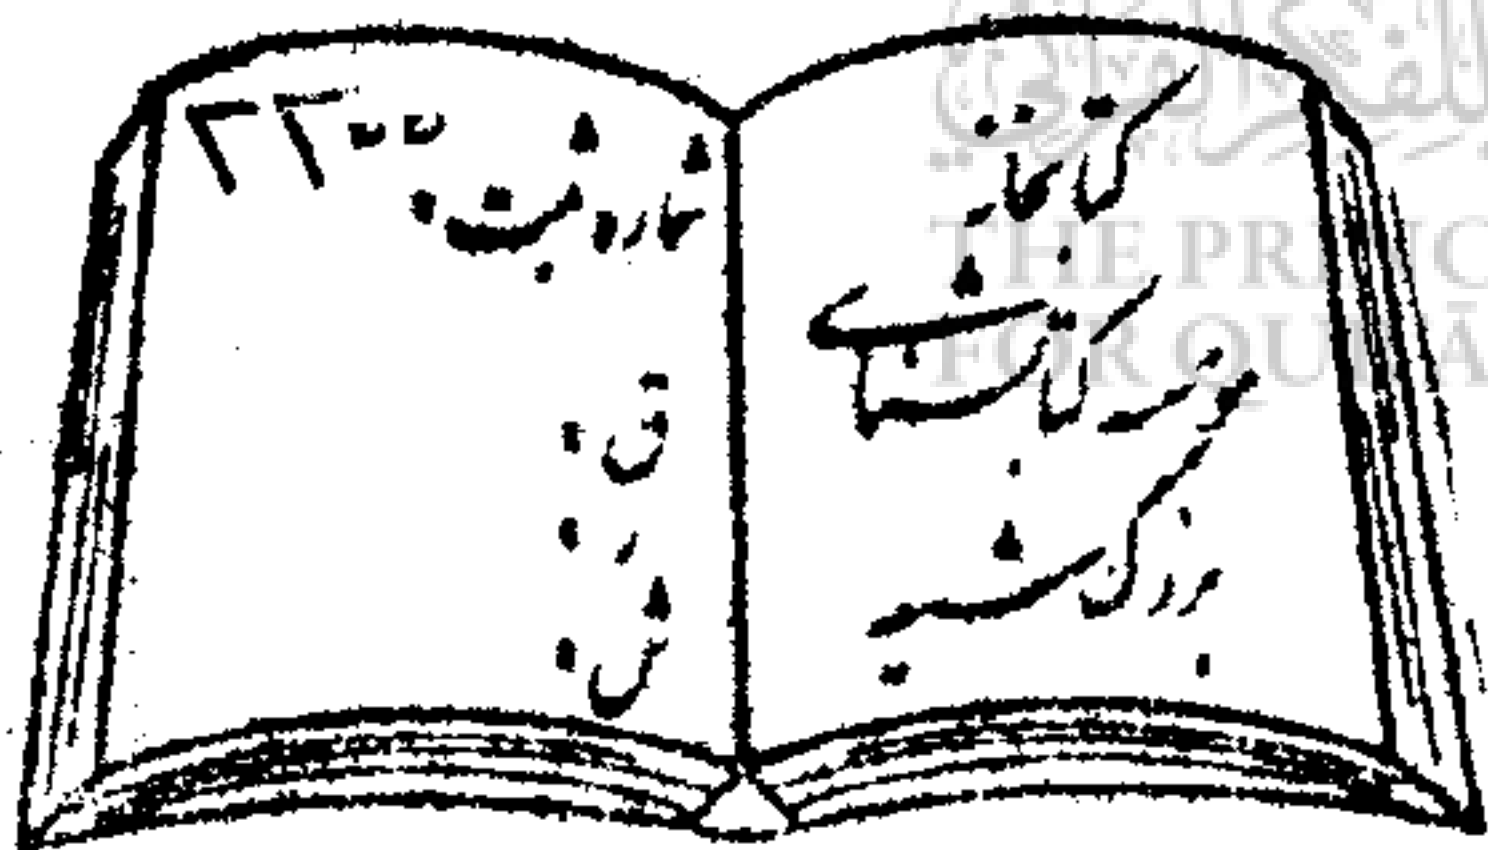 کتابخانه
موسسه کتابشناسی
بزرگ شیعه
شماره ثبت:
ق:
ر:
ش:
THE PR
FOR QU